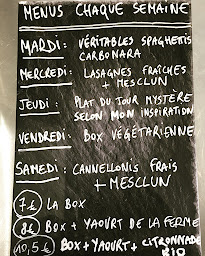 MENUS CHAQUE SEMAINE
MARDI : VÉRITABLES SPAGHETTIS
CARBONARA
MERCREDI : LASAGNES FRAÎCHES
+ MESCLUN
JEUDI : PLAT DU TOUR MYSTÈRE
SELON MON INSPIRATION
VENDREDI : BOX VÉGÉTARIENNE
SAMEDI : CANNELLONIS FRAIS
+ MESCLUN
7€ LA BOX
8€ BOX + YAOURT DE LA FERME
10,5€ BOX + YAOURT + CITRONNADE
BIO